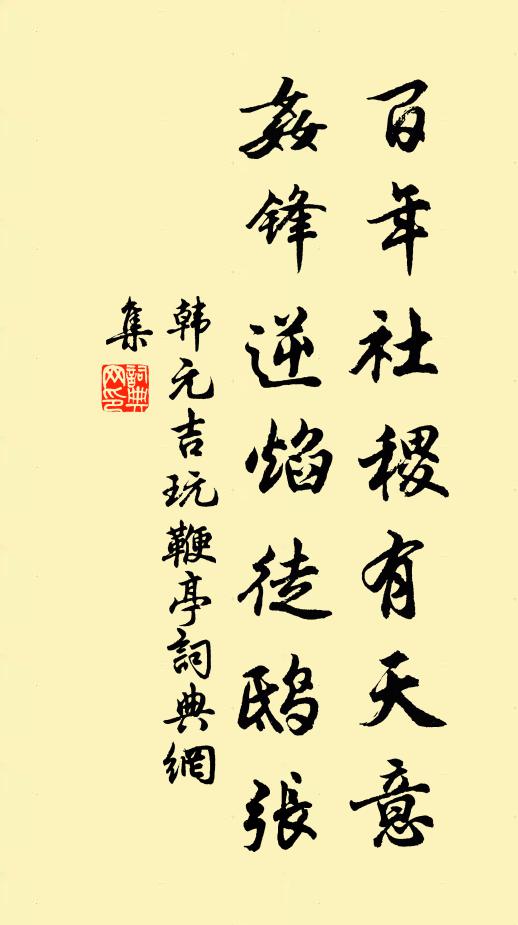 百年社稷有天意
姦鋒逆焰徒鴟張
韩元吉玩鞭亭詞典網
集
詞典网印